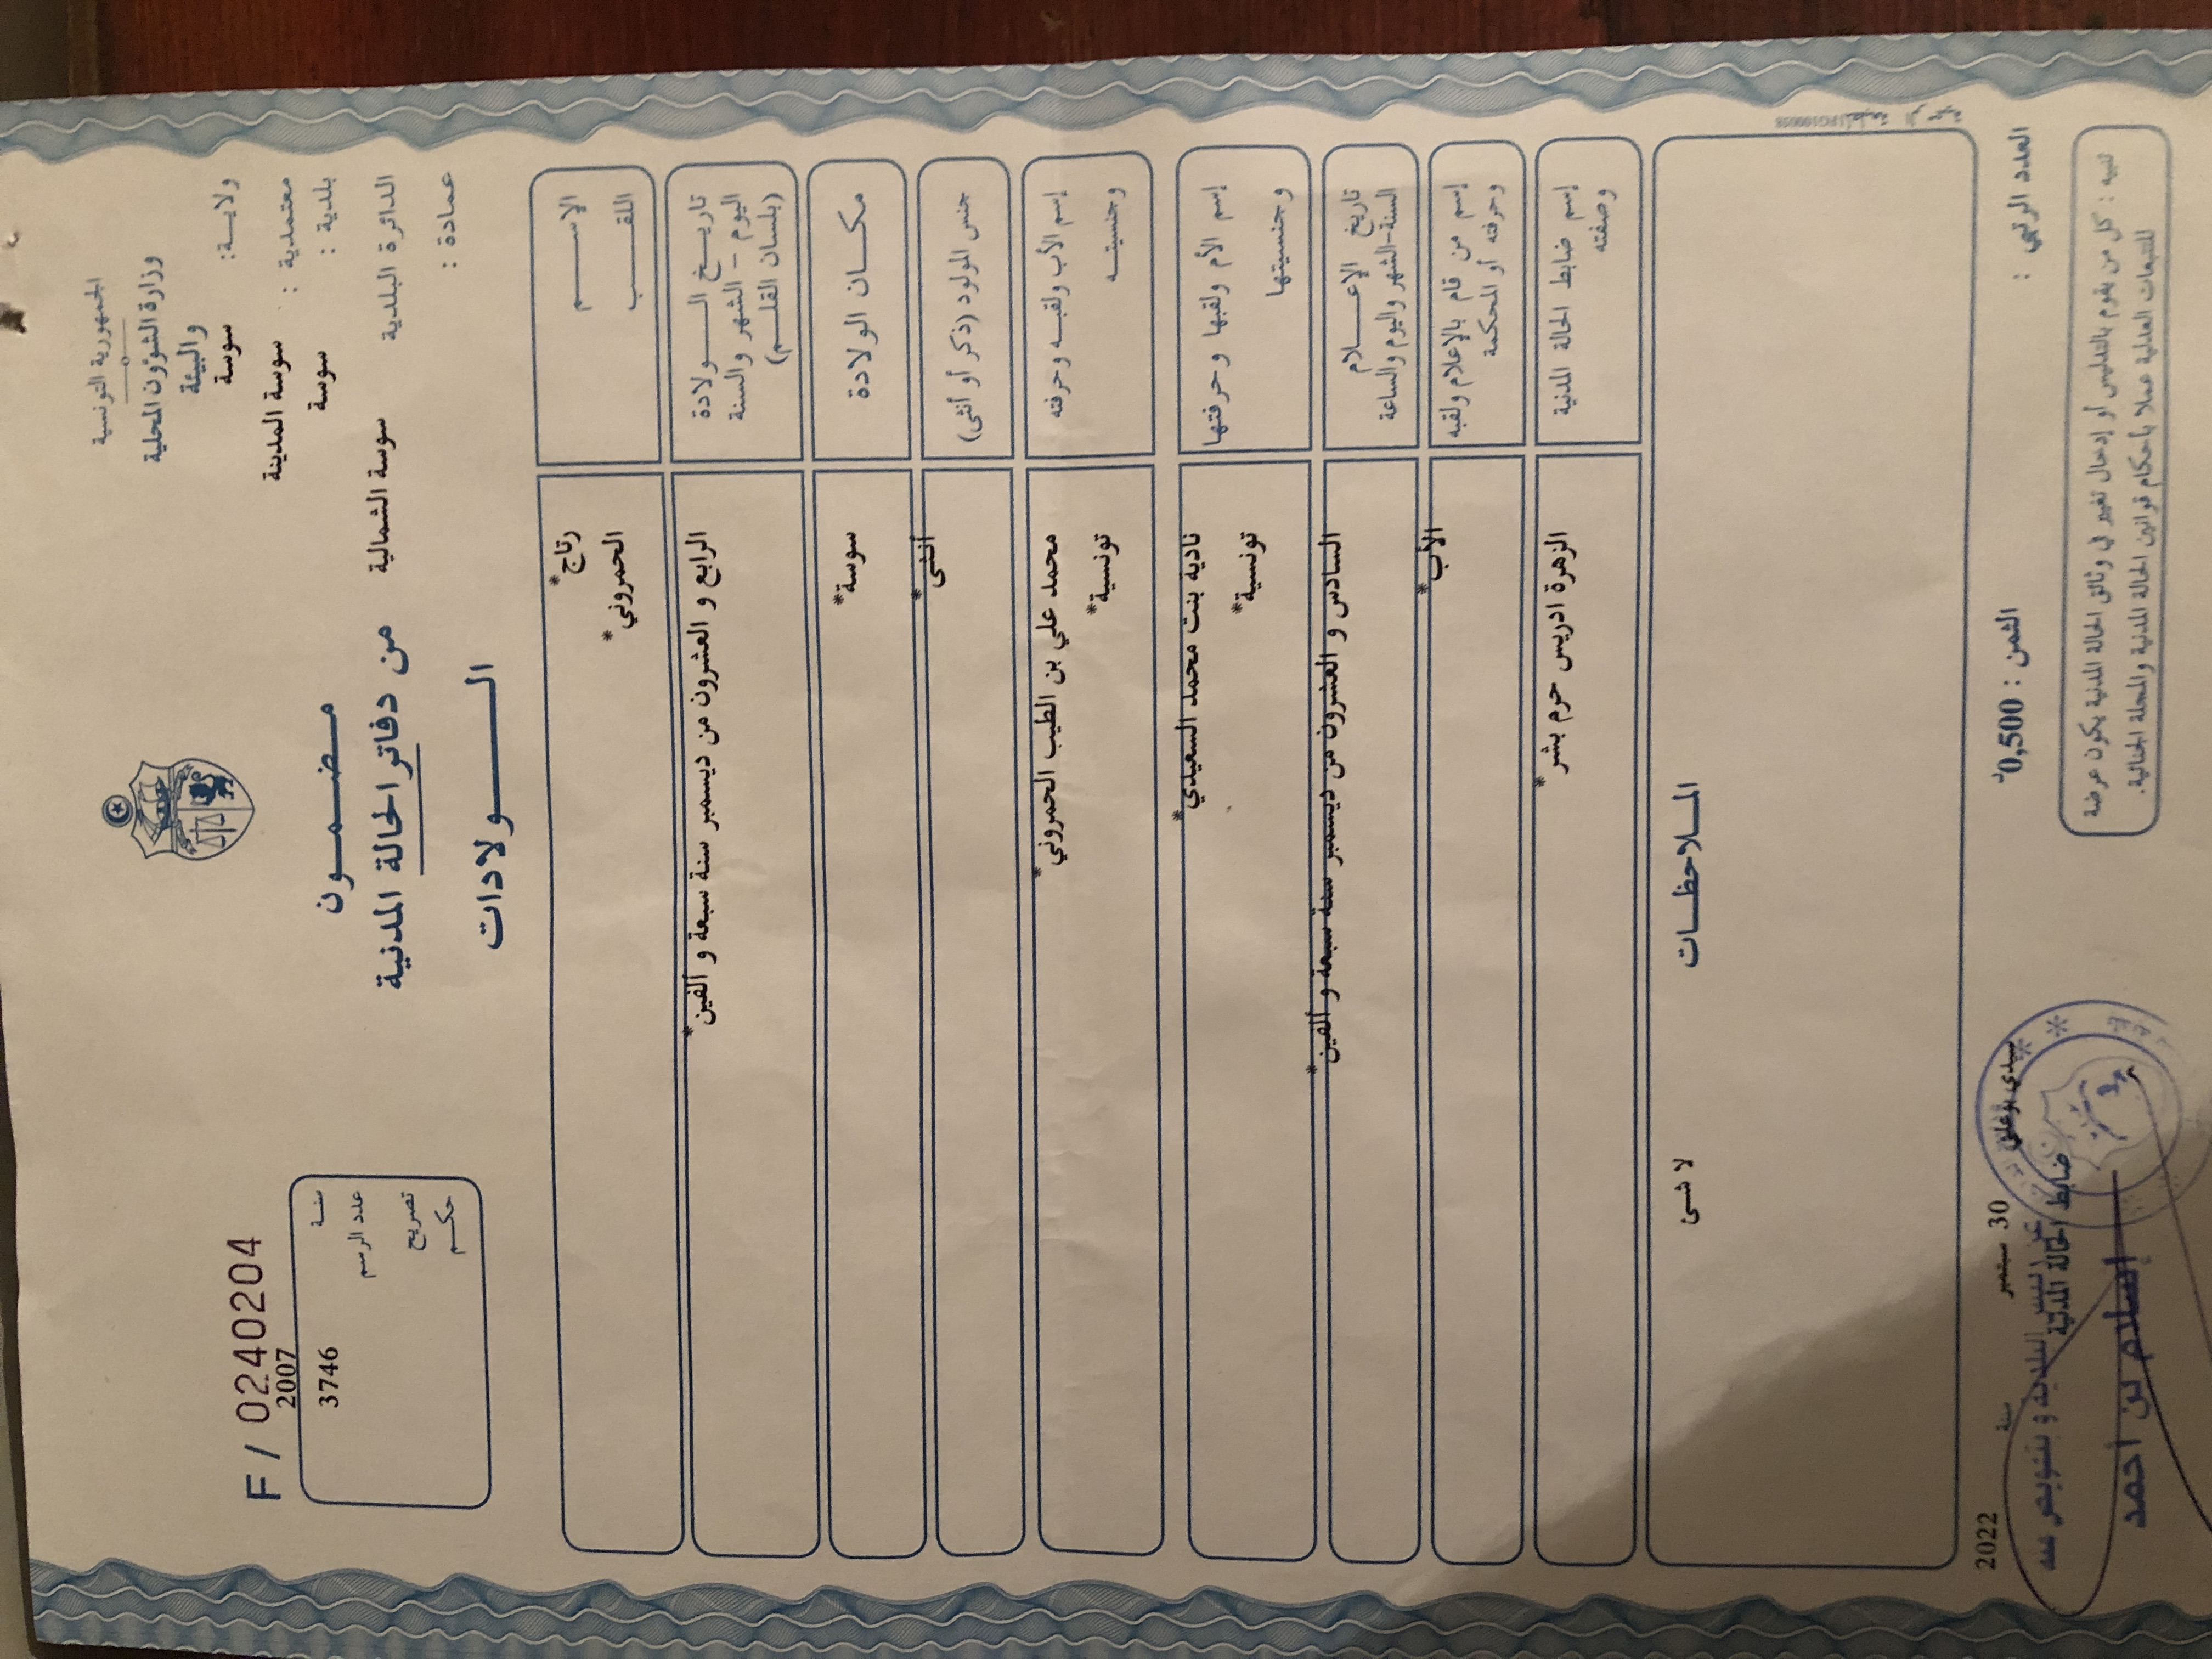 الجمهورية التونسية
وزارة الشؤون المحلية
والبيئة
ولايـة: سوسة
معتمدية : سوسة المدينة
بلدية : سوسة
الدائرة البلدية سوسة الشمالية
عمادة :
مـضـمـون
من دفاتر الحالة المدنية
الـولادات
F / 0240204
سنـة 2007
عدد الرسم 3746
تصريح
حكـم
الإسـم رتاج*
اللقـب الحمروني*
تاريـخ الـولادة
اليوم - الشهر والسنة
(بلسان القلـم)
الرابع و العشرون من ديسمبر سنة سبعة و ألفين*
مكـان الولادة سوسة*
جنس المولود (ذكر أو أنثى) أنثى*
إسم الأب ولقبـه وحرفته محمد علي بن الطيب الحمروني*
وجنسيتـه تونسية*
إسم الأم ولقبها وحرفتها نادية بنت محمد السعيدي*
وجنسيتها تونسية*
تاريخ الإعـلام
السنة-الشهر واليوم والساعة
السادس و العشرون من ديسمبر سنة سبعة و ألفين*
إسم من قام بالإعلام ولقبه
وحرفته أو المحكمة
الأب*
إسم ضابط الحالة المدنية
وصفته
الزهرة ادريس حرم بشر*
المـلاحظـات
لا شئ
العدد الرتبي :
الثمن : 0,500د
سيدي بوعلي 30 سبتمبر سنة 2022
ضابط الحالة المدنية
عن رئيس البلدية و بتفويض منه
إسلام بن أحمد
تنبيه : كل من يقوم بالتدليس أو إدخال تغيير في وثائق الحالة المدنية يكون عرضة
للتتبعات العدلية عملا بأحكام قوانين الحالة المدنية والمجلة الجنائية.